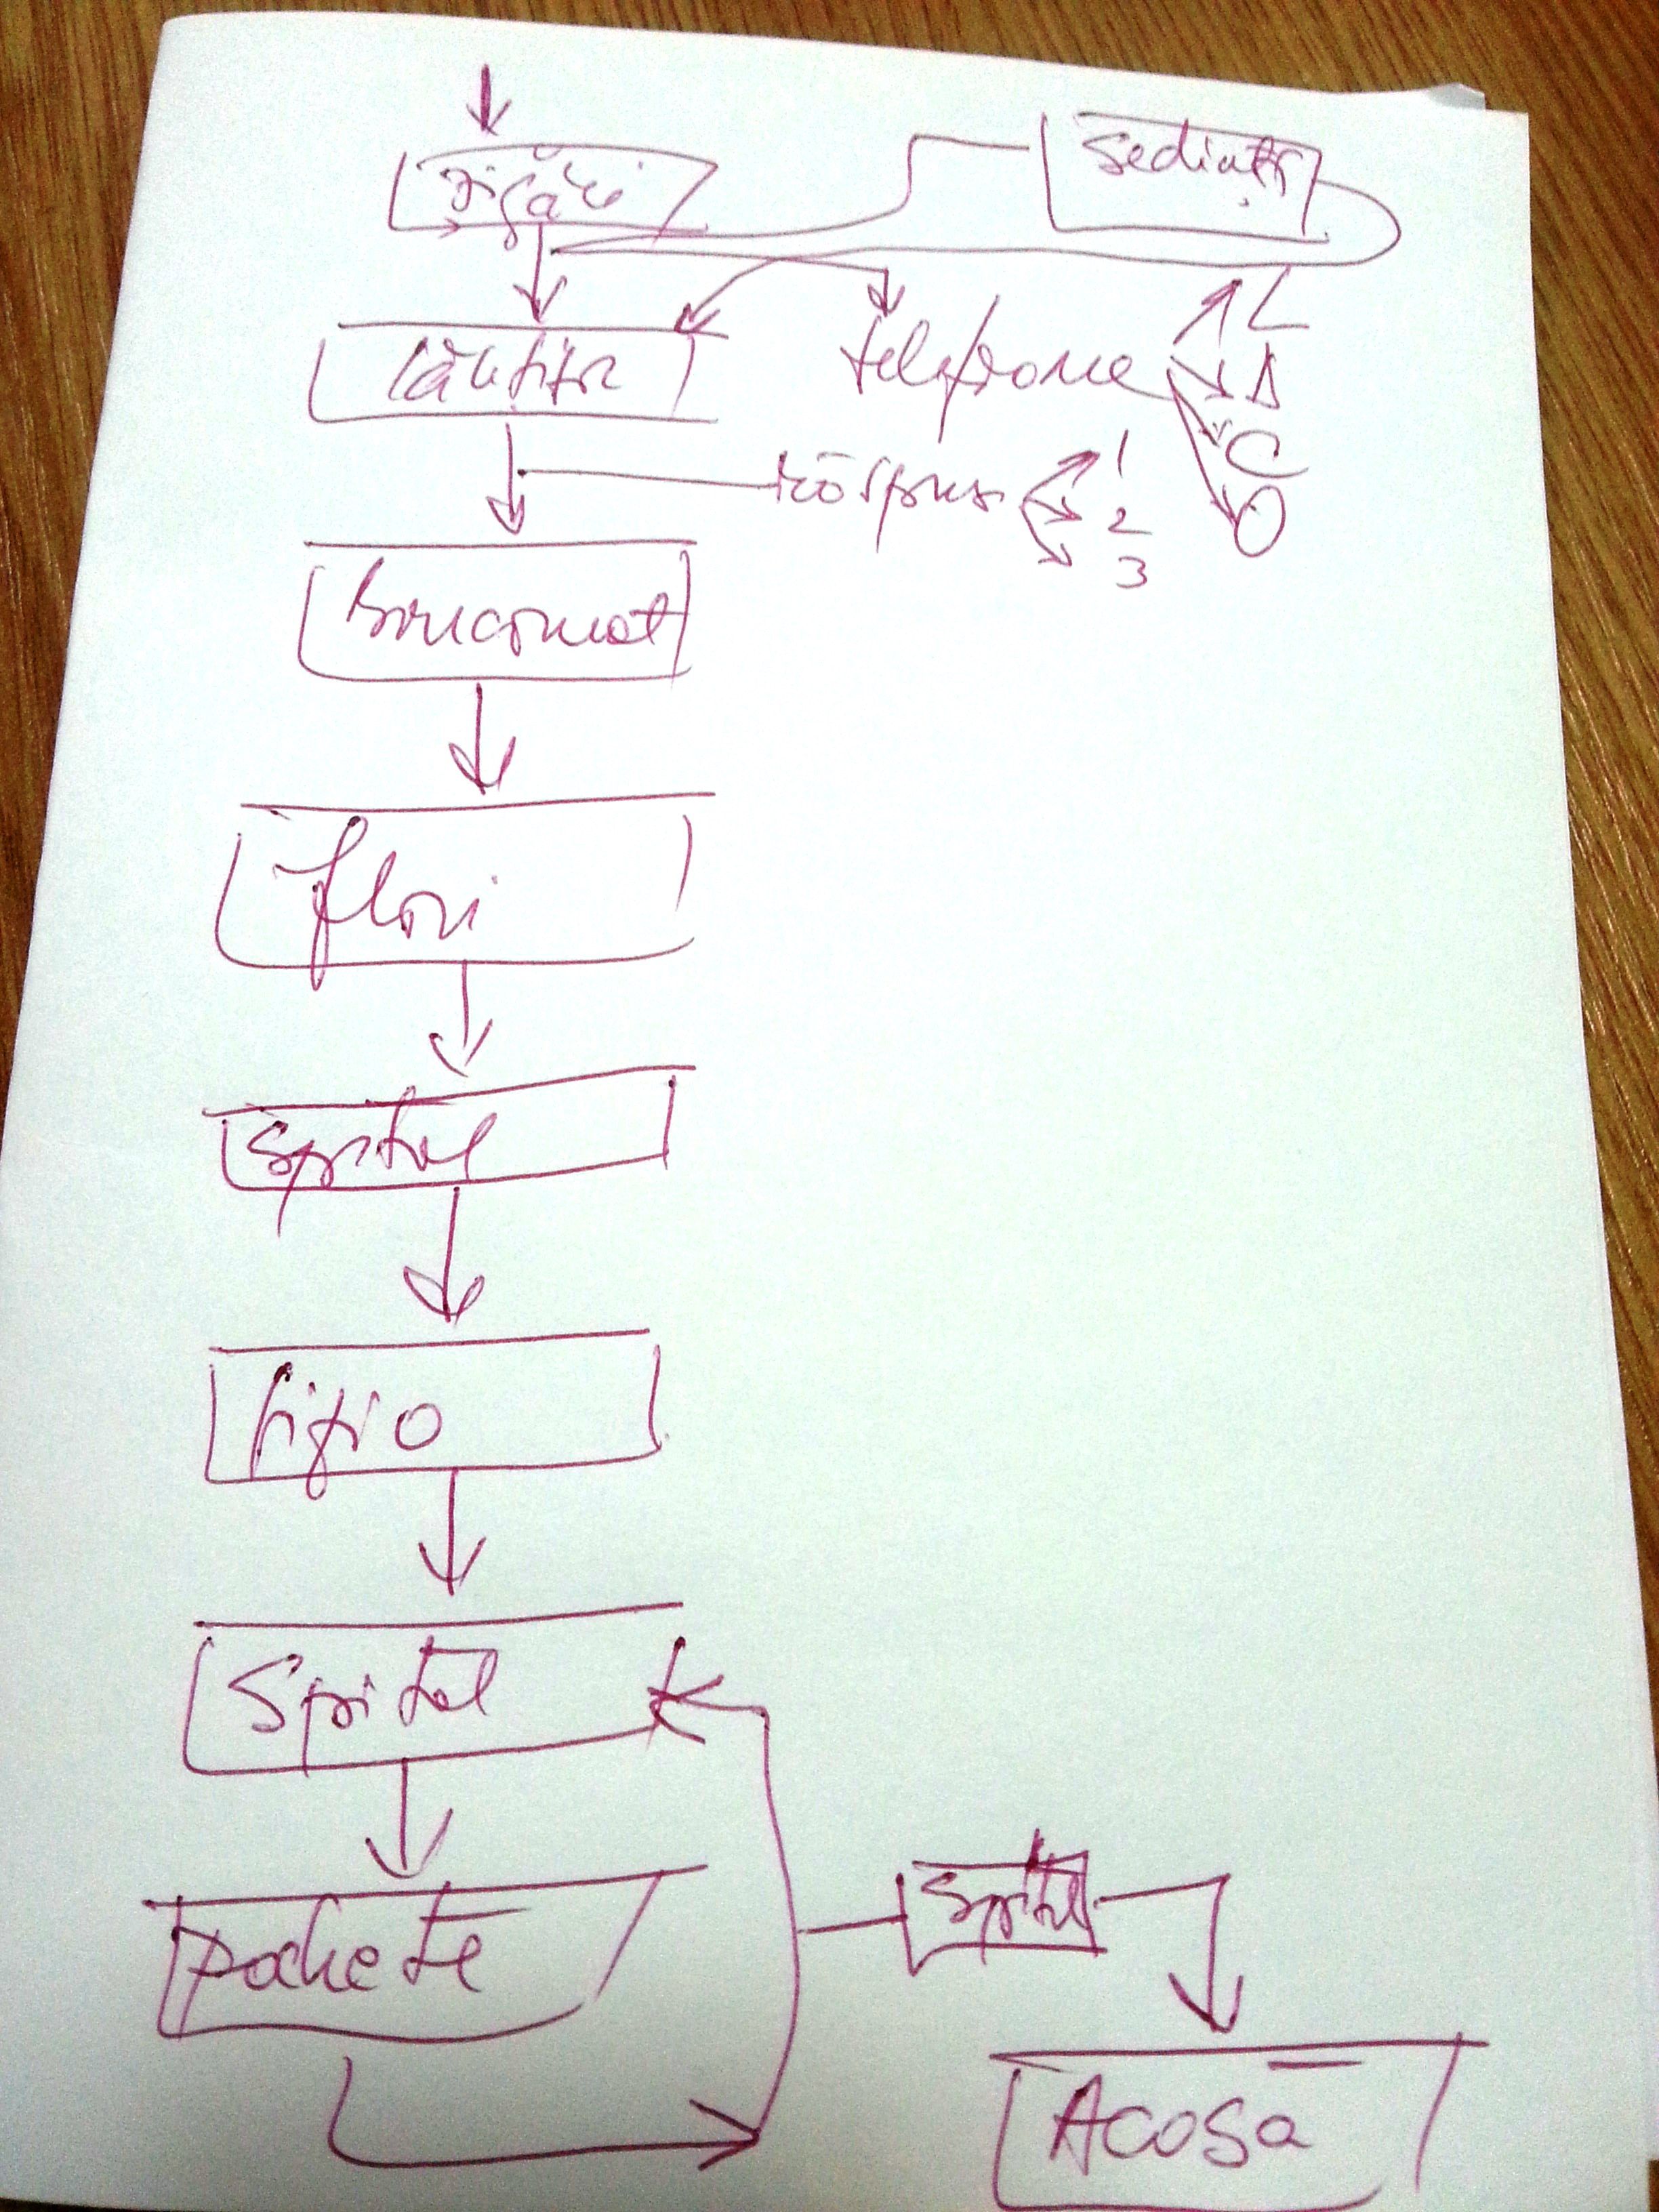 țigări
sediu
telefoane
L
D
C
O
răspuns
1
2
3
Bancomat
flori
Spital
fizio
Spital
pachete
Spital
Acasa